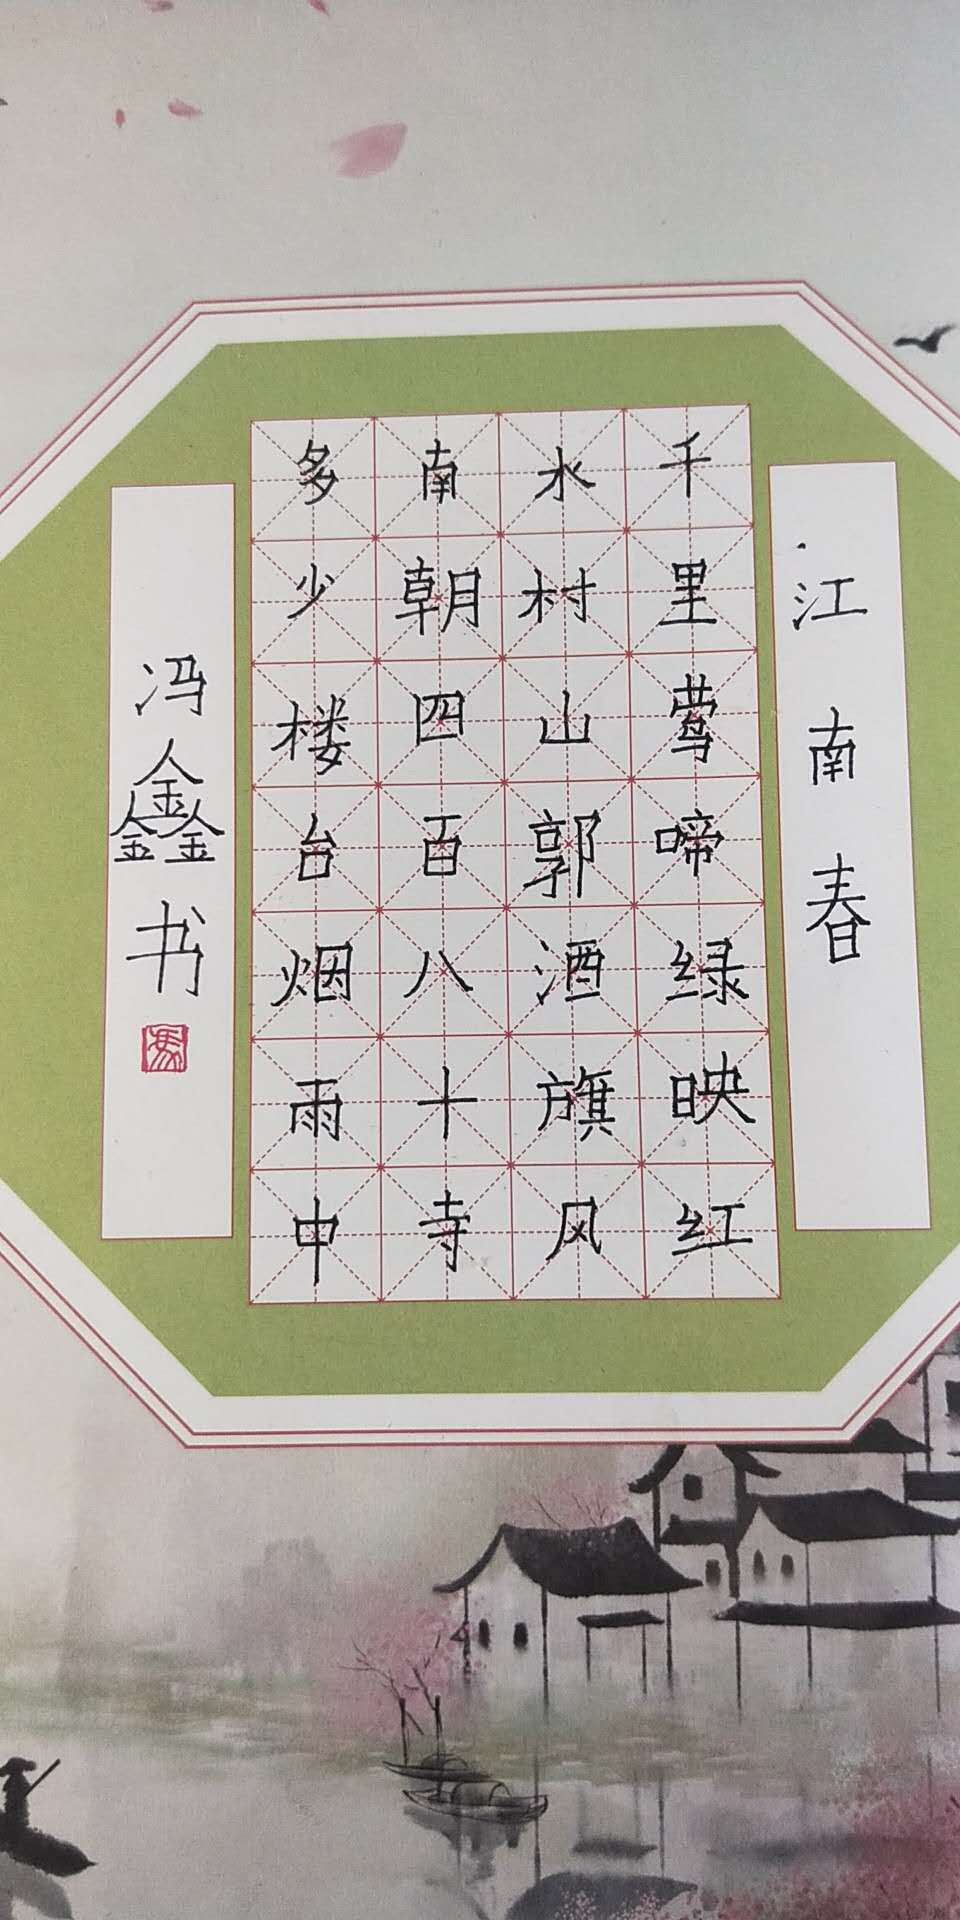 江南春
千里莺啼绿映红
水村山郭酒旗风
南朝四百八十寺
多少楼台烟雨中
冯鑫书
馮